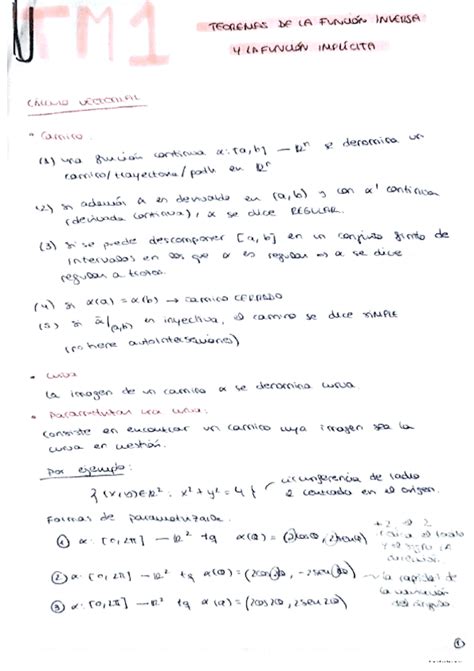 TM1
TEOREMAS DE LA FUNCIÓN INVERSA
Y LA FUNCIÓN IMPLÍCITA
CÁLCULO VECTORIAL
• Camino.
(1) una función continua α: [a,b] → ℝⁿ se denomina un
camino/trayectoria/path en ℝⁿ
(2) si además α es derivable en (a,b) y con α' continua
(derivada continua), α se dice REGULAR.
(3) Si se puede descomponer [a,b] en un conjunto finito de
intervalos en los que α es regular ⇒ α se dice
regular a trozos.
(4) Si α(a) = α(b) → camino CERRADO
(5) Si α̃|(a,b) es inyectiva, el camino se dice SIMPLE
(no tiene autointersecciones)
• Curva
La imagen de un camino α se denomina curva
• Parametrizar una curva:
Consiste en encontrar un camino cuya imagen sea la
curva en cuestión.
Por ejemplo:
{(x,y)∈ℝ² : x²+y²=4} circunferencia de radio
2 centrada en el origen.
Formas de parametrizarla:
① α: [0,2π] → ℝ² tq α(θ) = (2cosθ, 2senθ)
② α: [0,2π] → ℝ² tq α(θ) = (2cosθ, -2senθ)
③ α: [0,2π] → ℝ² tq α(θ) = (2cos2θ, 2sen2θ)
la rapidez de
①